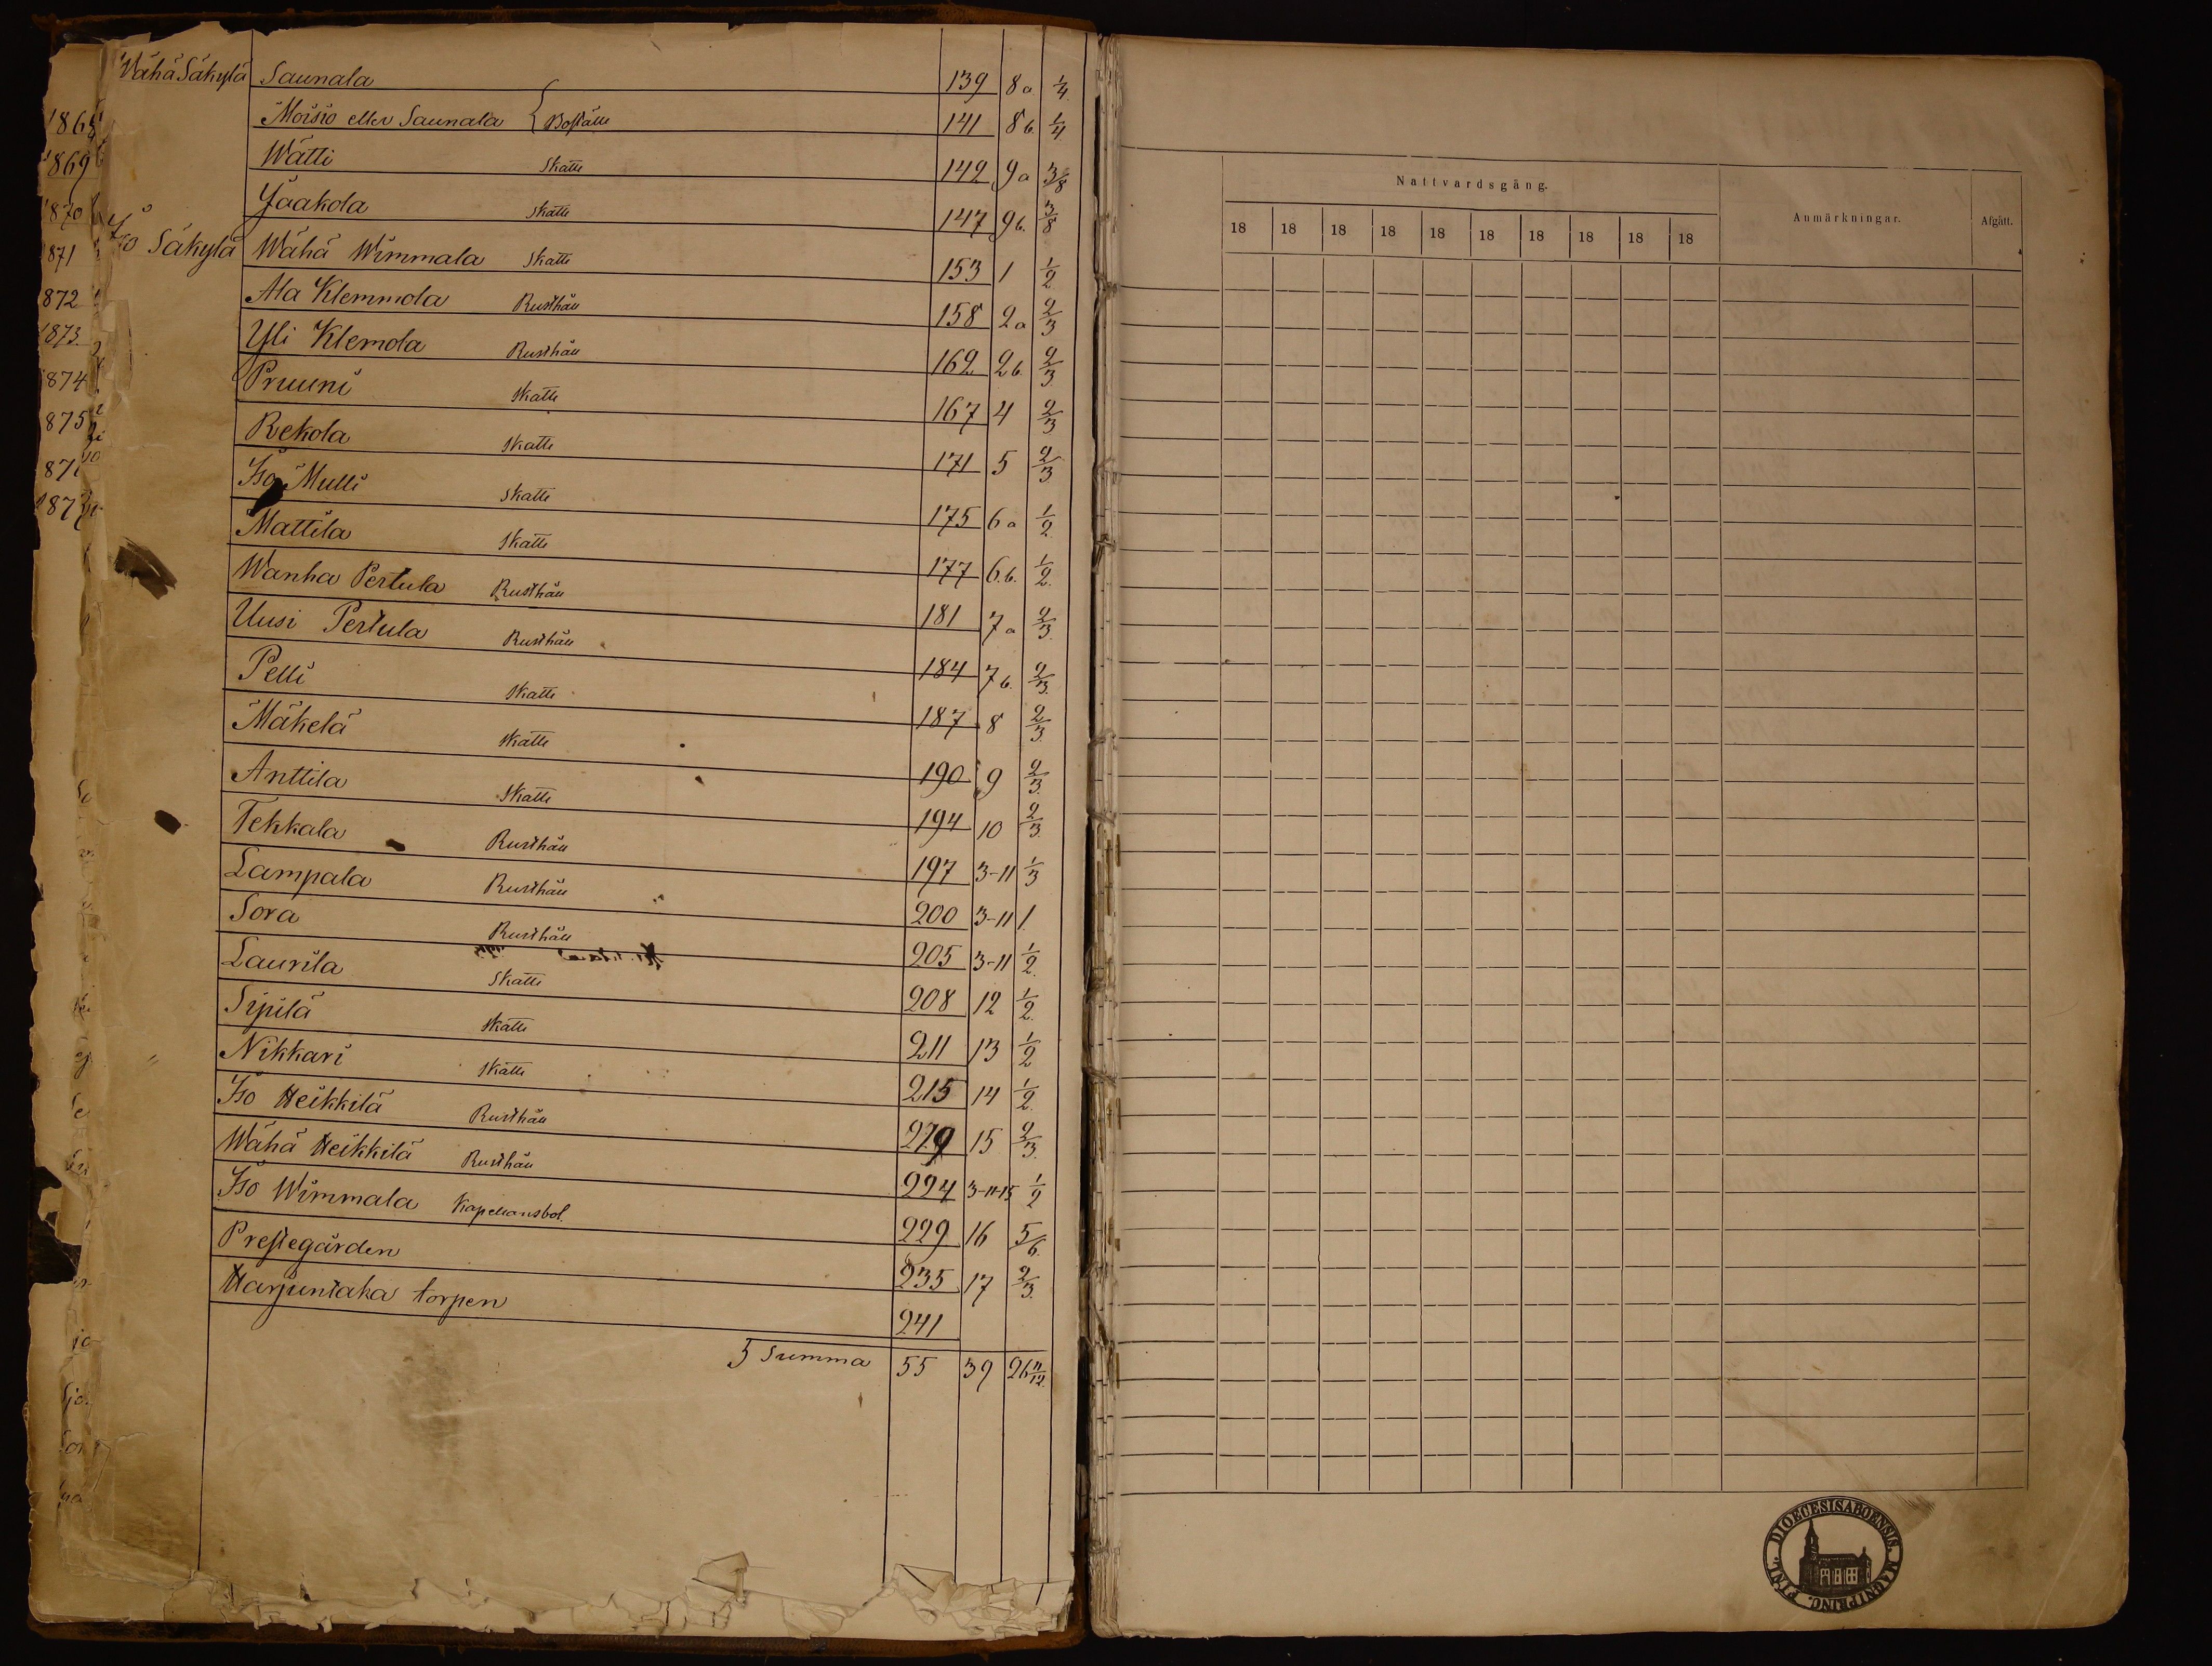 Wähä Säkylä Saunala 139 8a 1/4
Moisio eller Saunala { Boställe 141 8b. 1/4
Wätti Skatte 142 9a 3/8
Jaakola Skatte 147 9b. 3/8
Iso Säkylä Wähä Wimmala Skatte 153 1 1/2
Ala Klemmola Rusthåll 158 2a 2/3
Yli Klemola Rusthåll 162 2b. 2/3
Pruuni Skatte 167 4 2/3
Rekola Skatte 171 5 2/3
Iso Mulli Skatte 175 6a 1/2
Mattila Skatte 177 6.b. 1/2.
Wanha Pertula Rusthåll 181 7a 2/3.
Uusi Pertula Rusthåll 184 7b. 2/3.
Pelli Skatte 187 8 2/3.
Mäkelä Skatte 190 9 2/3.
Anttila Skatte 194 10 2/3.
Tekkala Rusthåll 197 3-11 1/3
Lampala Rusthåll 200 3-11 1
Sora Rusthåll 205 3-11 1/2.
Laurila Skatte 208 12 1/2.
Sipilä Skatte 211 13 1/2
Nikkari Skatte 215 14 1/2.
Iso Heikkilä Rusthåll 15 2/3.
Wähä Heikkilä Rusthåll 224 3-11-15 1/2
Iso Wimmala Kapellansbol. 229 16 5/6.
Prestegården 235 17 2/3.
Harjuntaka torpen 241
Summa 55 39 26 11/12.
1868
1869
1870
1871
1872
1873.
1874
1875
Nattvardsgång.
Anmärkningar.
Afgått.
18 18 18 18 18 18 18 18 18 18
FINL. DIOECESIS ABOENSIS. MAGNI PRINC.